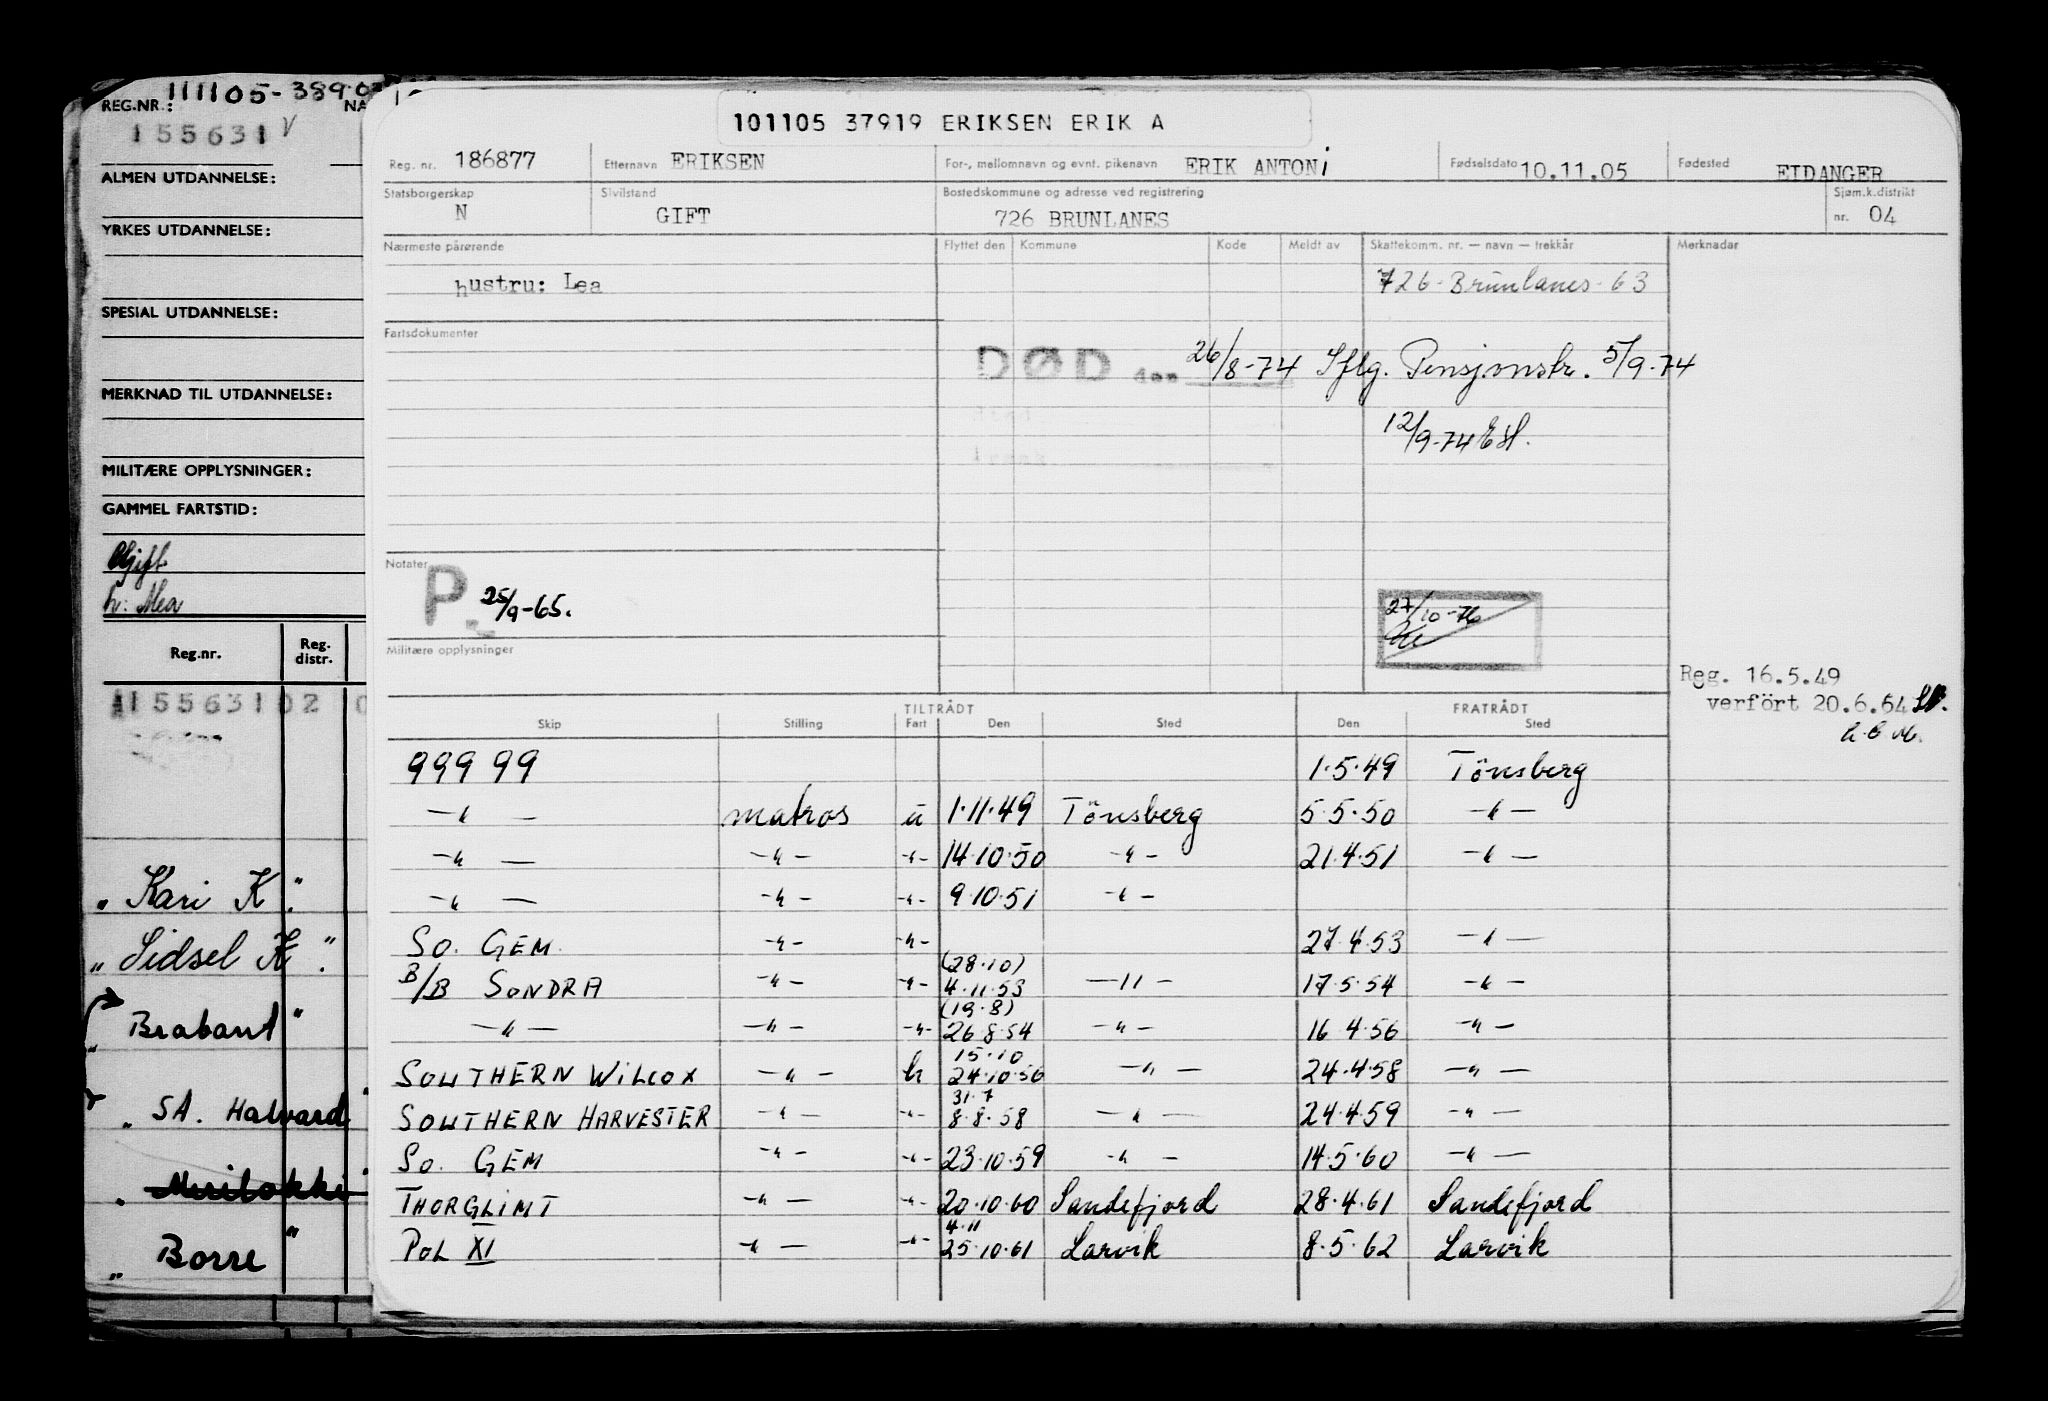 111105-389
REG.NR.: NA
155631 V
ALMEN UTDANNELSE:
YRKES UTDANNELSE:
SPESIAL UTDANNELSE:
MERKNAD TIL UTDANNELSE:
MILITÆRE OPPLYSNINGER:
GAMMEL FARTSTID:
Gift
h: Mea
Reg.nr. Reg. distr.
155631 02 0
„ Kari K."
„ Sidsel K."
„ Brabant "
„ SA. Halvard "
„ Borre "
101105 37919 ERIKSEN ERIK A
Reg. nr. 186877 Etternavn ERIKSEN For-, mellomnavn og evnt. pikenavn ERIK ANTONi Fødselsdato 10.11.05 Fødested EIDANGER
Statsborgerskap N Sivilstand GIFT Bostedskommune og adresse ved registrering 726 BRUNLANES Sjøm.k.distrikt nr. 04
Nærmeste pårørende Flyttet den Kommune Kode Meldt av Skattekomm. nr. — navn — trekkår Merknadar
hustru: Lea 726-Brunlanes-63
Fartsdokumenter
DØD den 26/8-74 Iflg. Pensjonstr. 5/9-74
12/9-74 EH.
Notater
P. 25/9-65.
27/10-76
Militære opplysninger
Reg. 16.5.49
verfört 20.6.64
TILTRÅDT FRATRÅDT
Skip Stilling Fart Den Sted Den Sted
999 99 1.5.49 Tönsberg
—"— matros u 1.11.49 Tönsberg 5.5.50 —"—
—"— —"— -"- 14.10.50 —"— 21.4.51 —"—
—"— —"— -"- 9.10.51 —"—
SO. GEM. —"— -"- 27.4.53 —"—
(28.10)
B/B SONDRA —"— -"- 4.11.53 —"— 17.5.54 —"—
(19.8)
—"— —"— -"- 26.8.54 —"— 16.4.56 —"—
15.10
SOUTHERN WILCOX —"— h 24.10.56 —"— 24.4.58 —"—
31.7
SOUTHERN HARVESTER —"— -"- 8.8.58 —"— 24.4.59 —"—
SO. GEM —"— -"- 23.10.59 —"— 14.5.60 —"—
THORGLIMT —"— -"- 20.10.60 Sandefjord 28.4.61 Sandefjord
4.11
POL XI —"— -"- 25.10.61 Larvik 8.5.62 Larvik